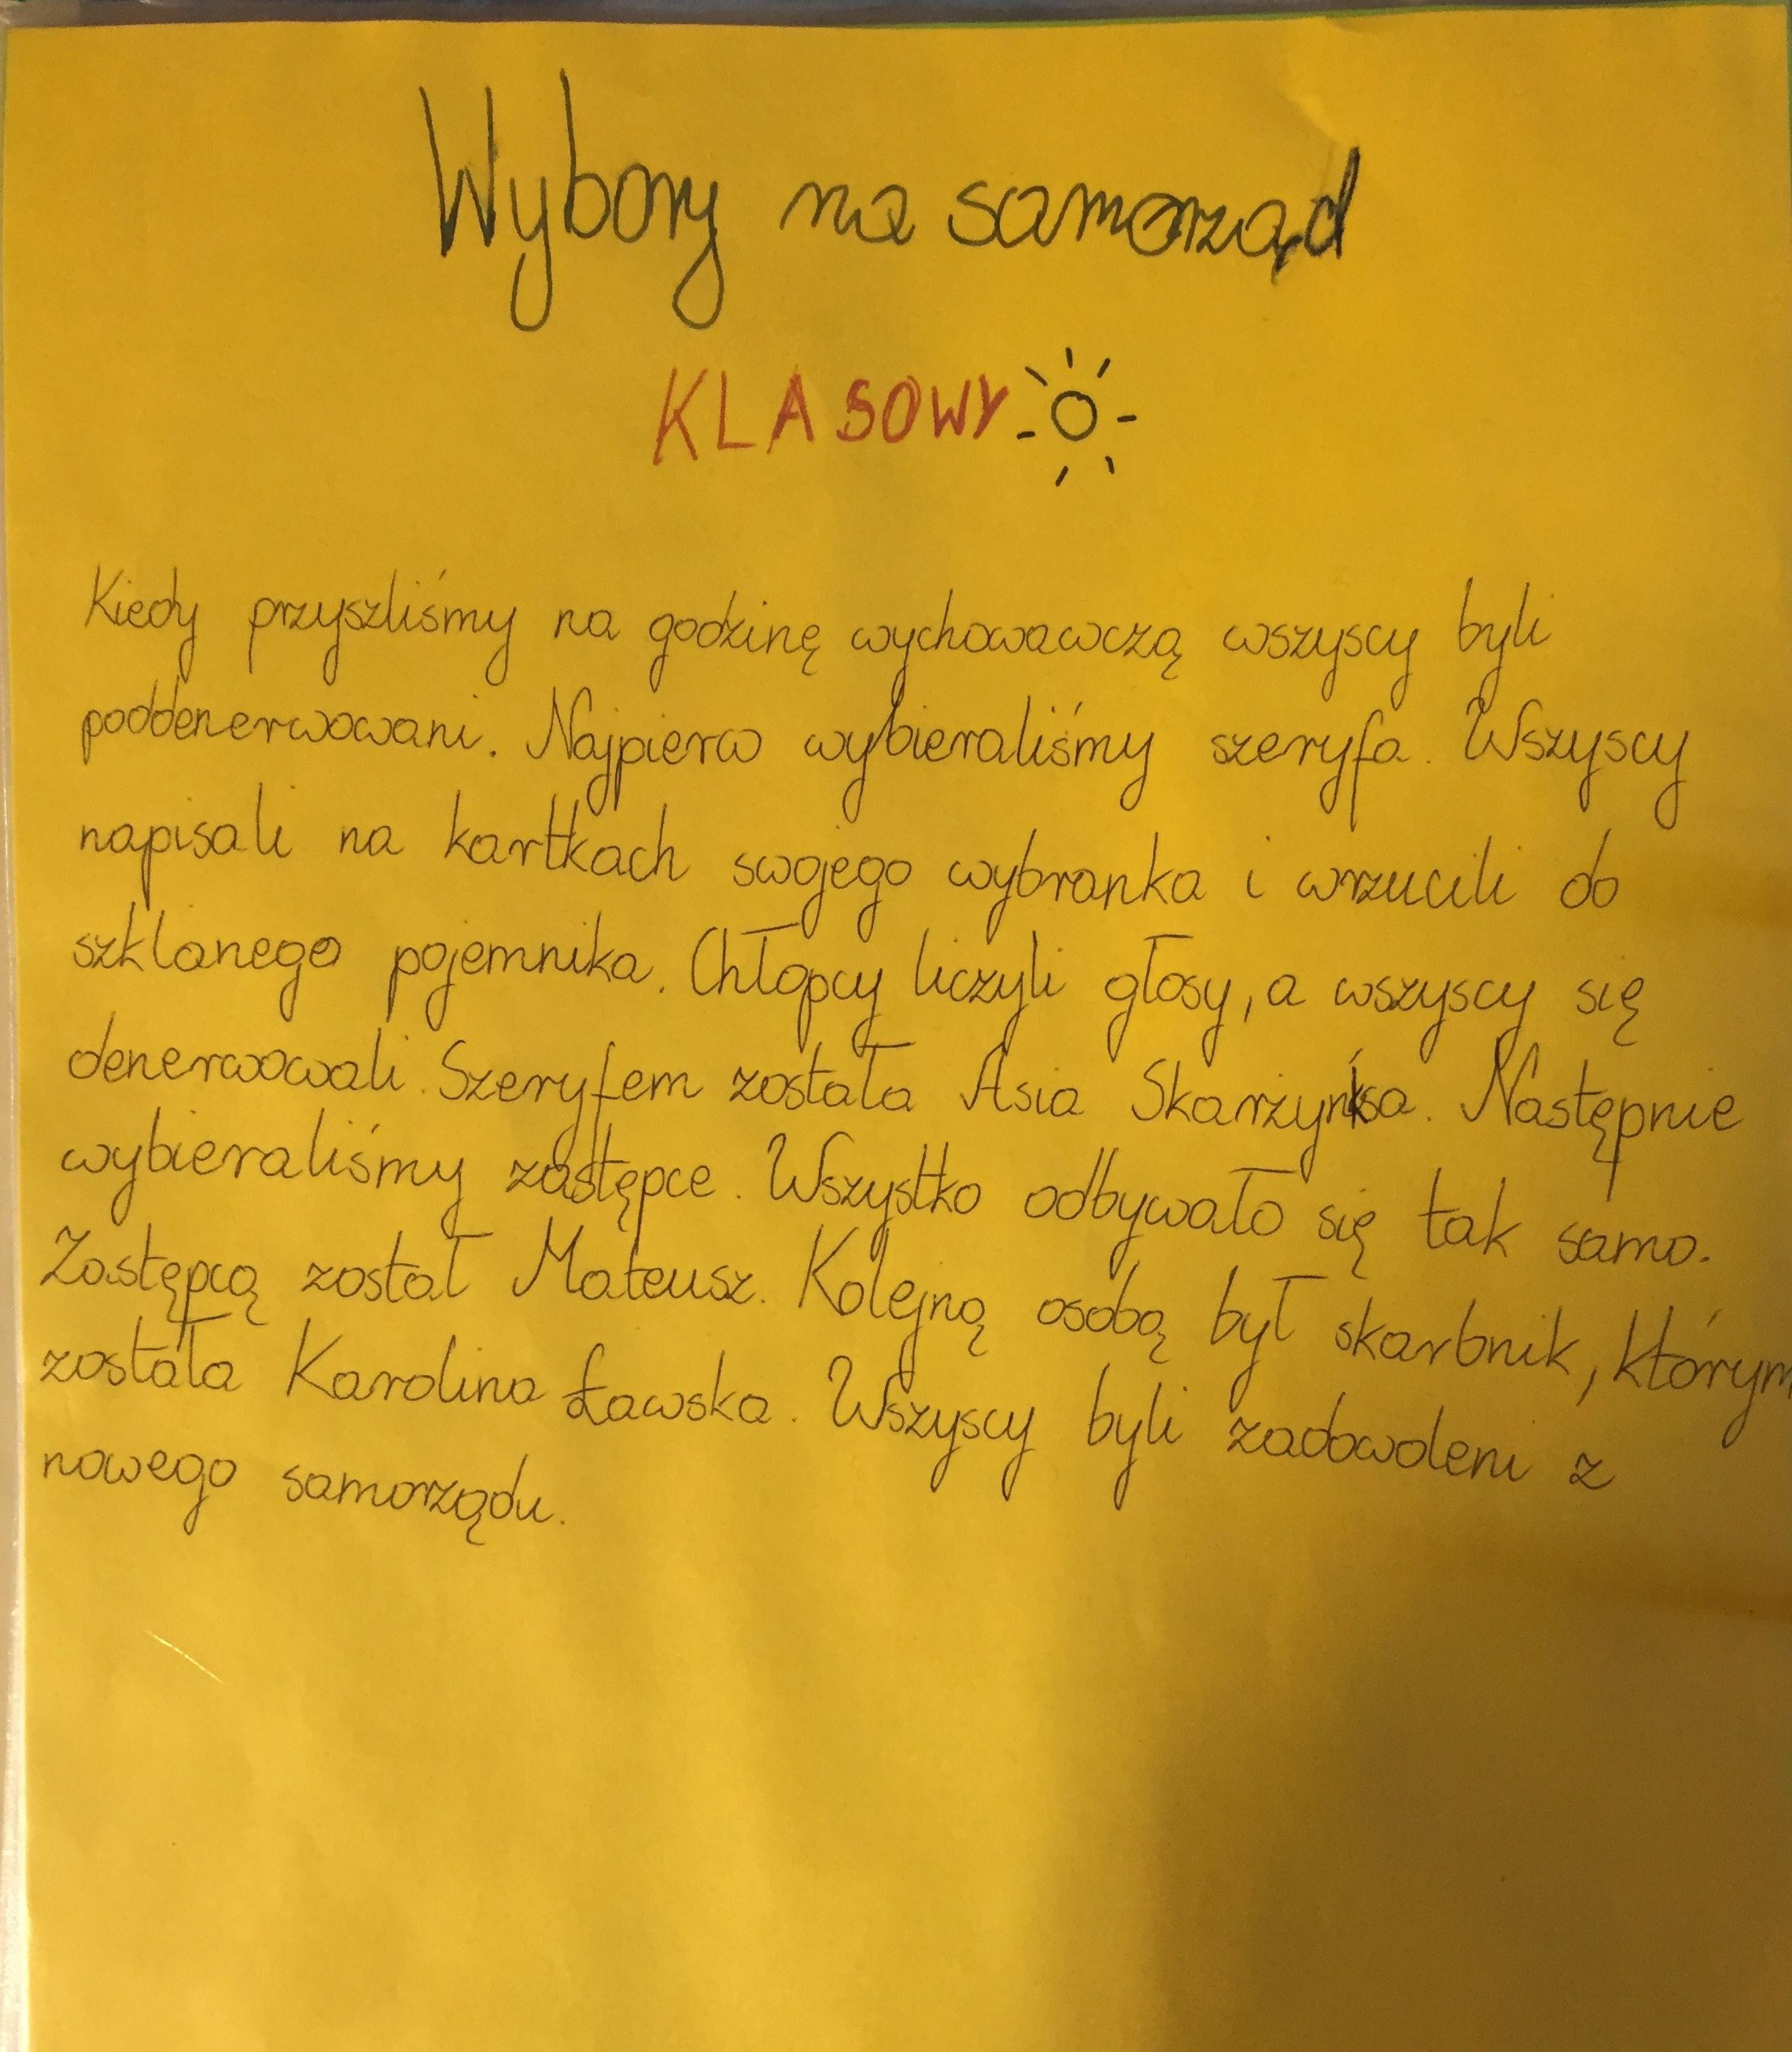 Wybory na samorząd
KLASOWY
Kiedy przyszliśmy na godzinę wychowawczą wszyscy byli
poddenerwowani. Najpierw wybieraliśmy szeryfa. Wszyscy
napisali na kartkach swojego wybranka i wrzucili do
szklanego pojemnika. Chłopcy liczyli głosy, a wszyscy się
denerwowali. Szeryfem została Asia Następnie
wybieraliśmy zastępce. Wszystko odbywało się tak samo.
Zastępcą został Mateusz. Kolejną osobą był skarbnik, którym
została Karolina Ławska. Wszyscy byli zadowoleni z
nowego samorządu.